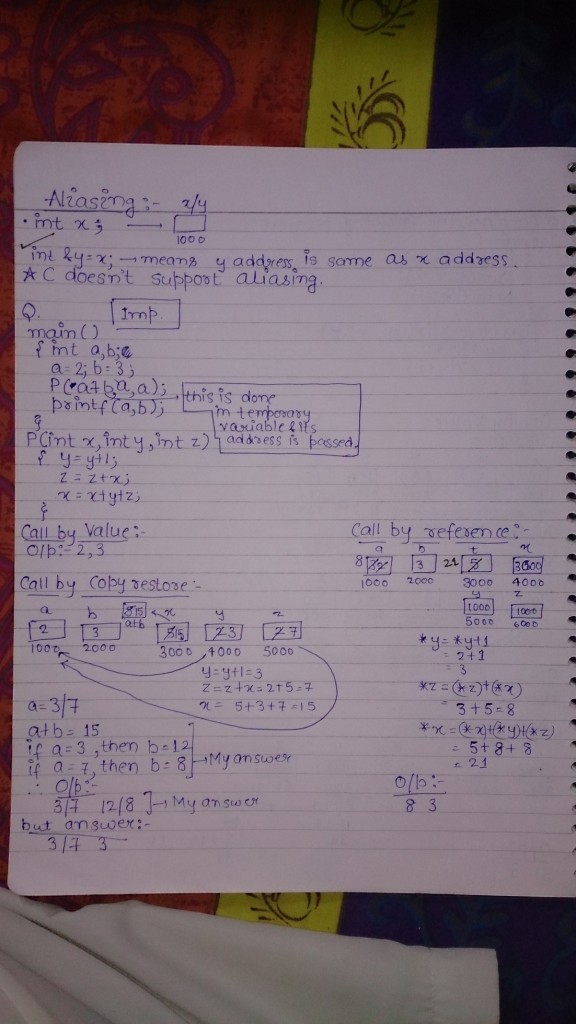 Aliasing :-
x/y
• int x; →
1000
int &y=x; → means y address is same as x address.
★ C doesn't support aliasing.
Q.
Imp
main()
{ int a,b;
a=2; b=3;
P(a+b,a,a);
printf(a,b);
}
this is done
in temporary
variable & its
address is passed.
P(int x, int y, int z)
{ y=y+1;
z=z+x;
x=x+y+z;
}
Call by Value:-
O/p:- 2,3
Call by Copy restore:-
a b a+b x y z
2 3 5 15 5 15 2 3 2 7
1000 2000 3000 4000 5000
y=y+1=3
z=z+x=2+5=7
x= 5+3+7=15
a=3/7
a+b = 15
if a=3, then b=12
if a=7, then b=8
→ My answer
∴ O/p:-
3/7 12/8 ] → My answer
but answer:-
3/7 3
Call by reference:-
a b t x
8 3 2 3 21 5 3000
1000 2000 3000 4000
y z
1000 1000
5000 6000
*y=*y+1
= 2+1
= 3
*z=(*z)+(*x)
3+5=8
*x=(*x)+(*y)+(*z)
= 5+8+8
= 21
O/p:-
8 3